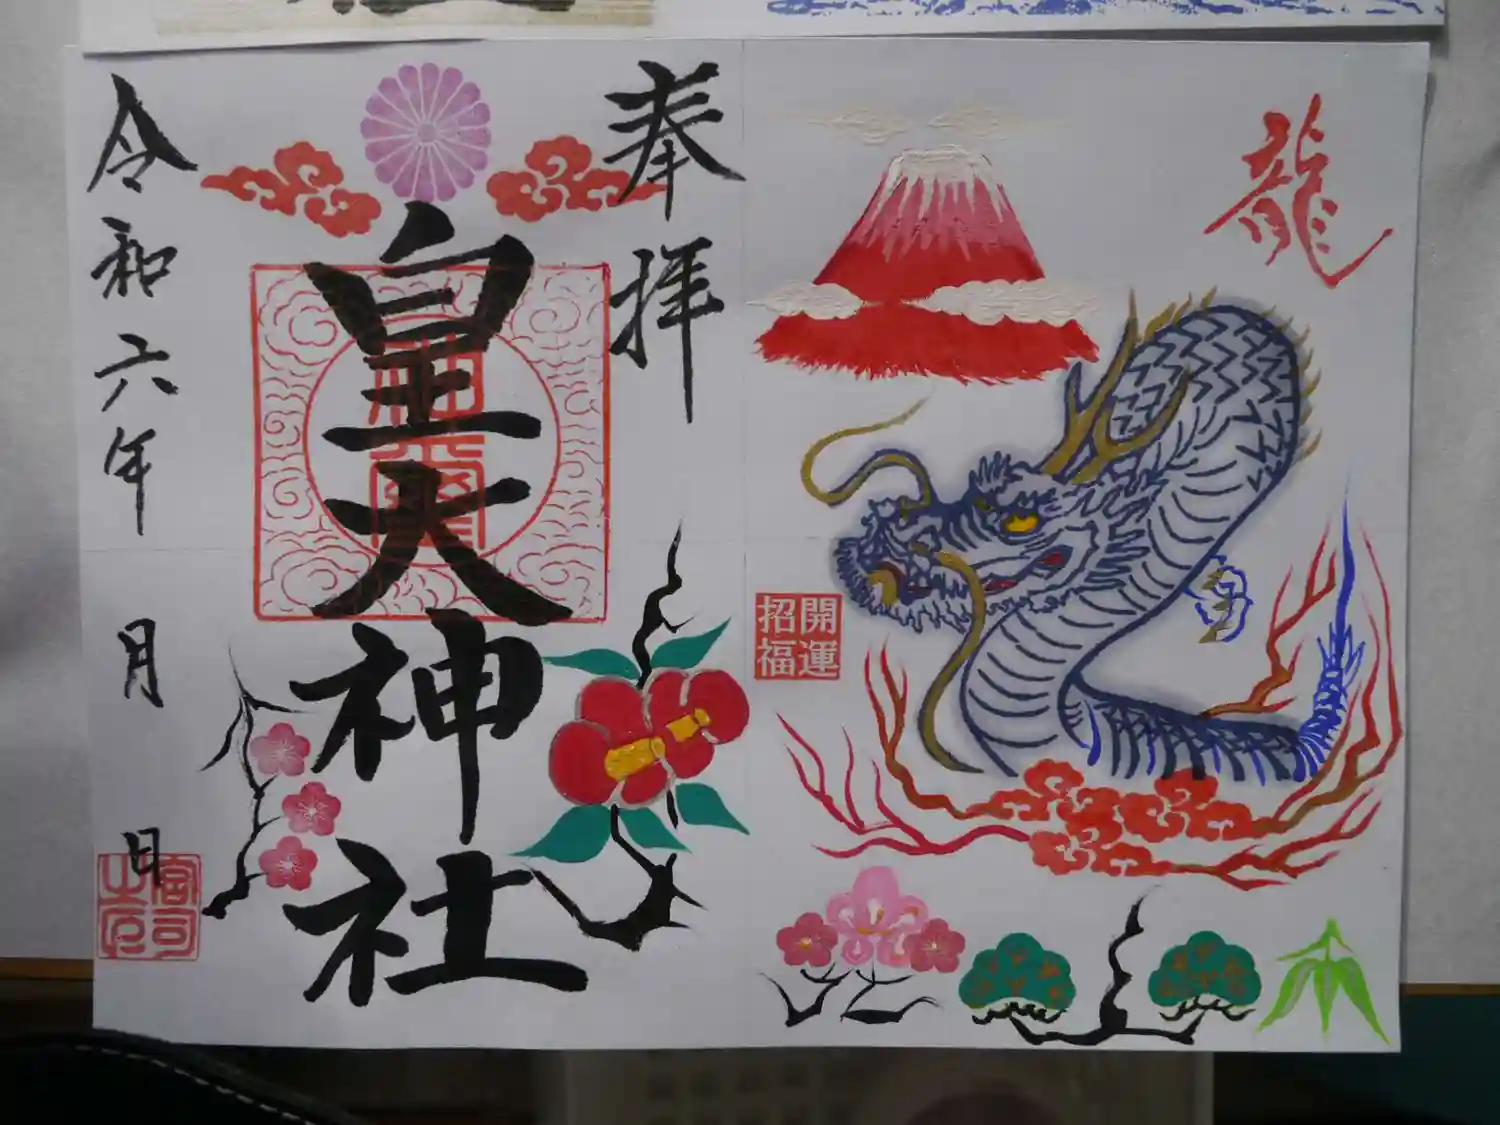 龍
開運
招福
奉拝
皇大神社
令和六年 月 日
宮司之印